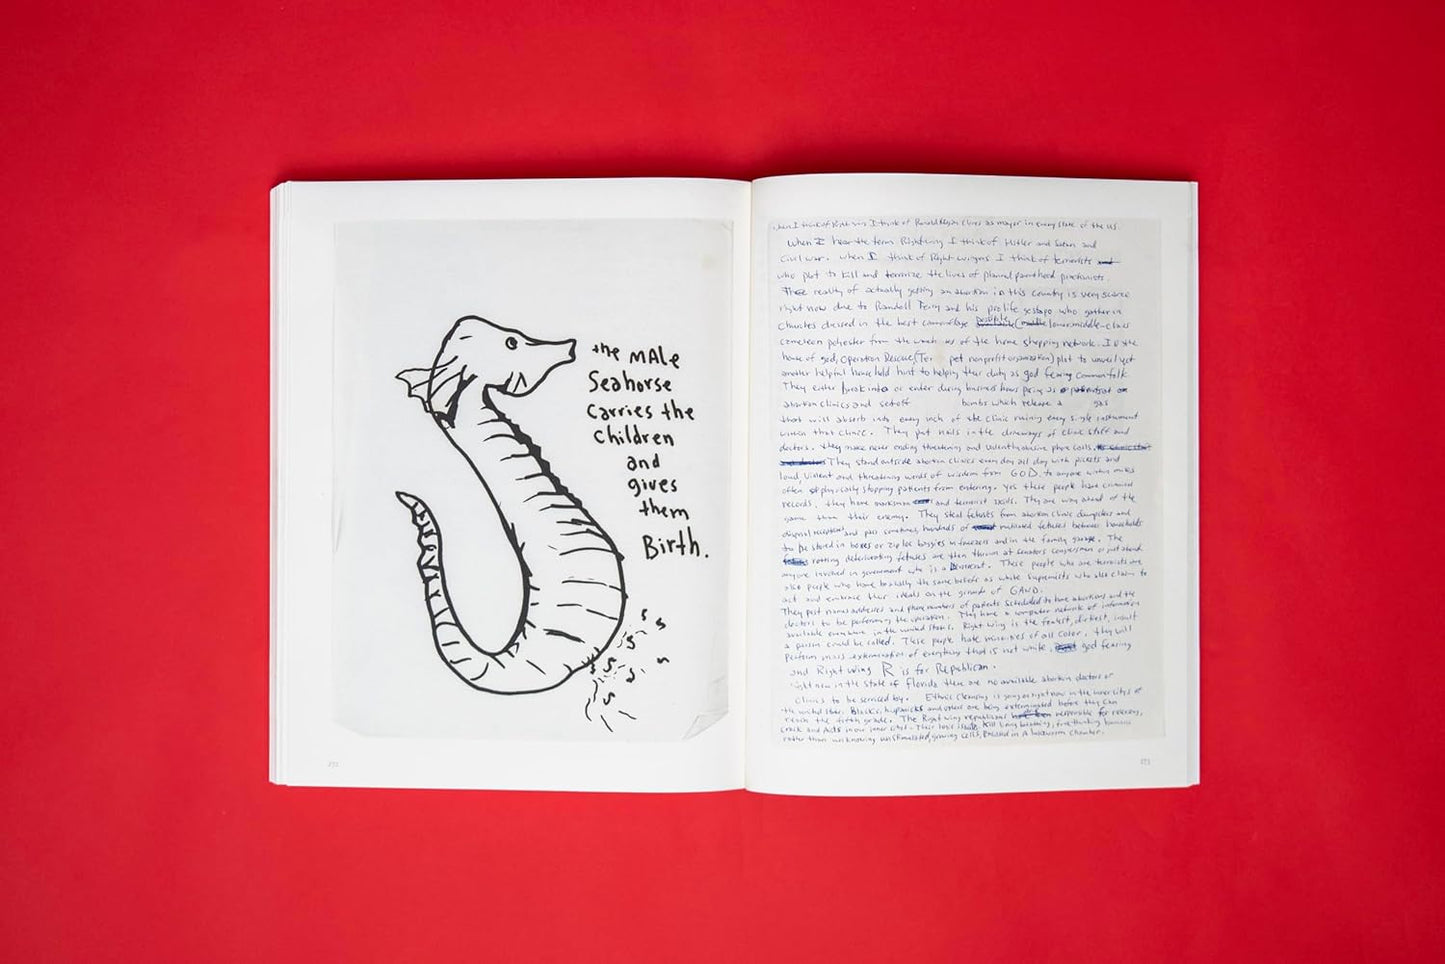 the MALE
Seahorse
carries the
children
and
gives
them
Birth.
252
when I think of Right wing I think of Ronald Reagan clones as mayor in every state of the US.
When I hear the term Rightwing I think of Hitler and Satan and
Civil war. when I think of Right wingers I think of terrorists
who plot to kill and terrorize the lives of planned parenthood practionists.
The reality of actually getting an abortion in this country is very scarce
right now due to Randall Terry and his prolife gestapo who gather in
Churches dressed in the best camoflage possible lower middle-class
cameleon poliester from the of the home shopping network. In the
house of god, Operation Rescue (Terrys pet nonprofit organization) plot to unveil yet
another helpful household hint to helping their duty as god fearing common folk.
They enter break into or enter during business hours posing as a patient at
abortion clinics and set off bombs which release a gas
that will absorb into every inch of the clinic ruining every single instrument
within that clinic. They put nails in the driveways of clinic staff and
doctors. they make never ending threatening and violently abusive phone calls.
They stand outside abortion clinics every day all day with pickets and
loud, violent and threatening words of wisdom from GOD. to anyone within miles
often physically stopping patients from entering. yes these people have criminal
records, they have marksman and terrorist skills. They are way ahead of the
game than their enemy. They steal fetuses from abortion clinic dumpsters and
disposal receptacles and pass sometimes, hundreds of mutilated fetuses between households
to be stored in boxes or zip loc baggies in freezers and in the family garage. The
rotting deteriorating fetuses are then thrown at senators congressmen or just about
anyone involved in government who is a Democrat. These people who are terrorists are
also people who have basically the same beliefs as white supremists who also claim to
act and embrace their ideals on the grounds of GAWD.
They post names addresses and phone numbers of patients scheduled to have abortions and the
doctors to be performing the operation. They have a computer network of information
available everywhere in the united states. Right wing is the foulest, dirtiest, insult
a person could be called. These people hate minorities of all color. they will
perform mass extermination of everything that is not white, god fearing
and Right wing R is for Republican.
right now in the state of Florida there are no available abortion doctors or
clinics to be serviced by. Ethnic Cleansing is going on right now in the inner cities of
the united states. Blacks, hispanicks and others are being exterminated before they can
reach the fifth grade. The Right wing republicans responsible for releasing,
Crack and Aids in our inner cities. Their logic is kill living breathing, free thinking humans
rather than unknowing unstimulated, growing cells, Encased in a chamber.
253